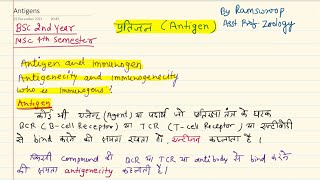 Antigens
BSC 2nd Year
MSC 4th Semester
प्रतिजन (Antigen)
By Ramswroop
Asst Prof. Zoology
Antigen and immunogen
Antigenecity and immunogeneicity
who is immunogens?
Antigen
कोई भी एजेन्ट (Agent) या पदार्थ जो प्रतिरक्षा तंत्र के घटक
BCR (B-cell Receptor) या TCR (T-cell Receptor) या एन्टीबॉडी
से bind करने की क्षमता रखता हो एन्टीजन कहलाता है।
किसी compound की BCR या TCR या antibody से bind करने
की क्षमता antigenecity कहलाती है।